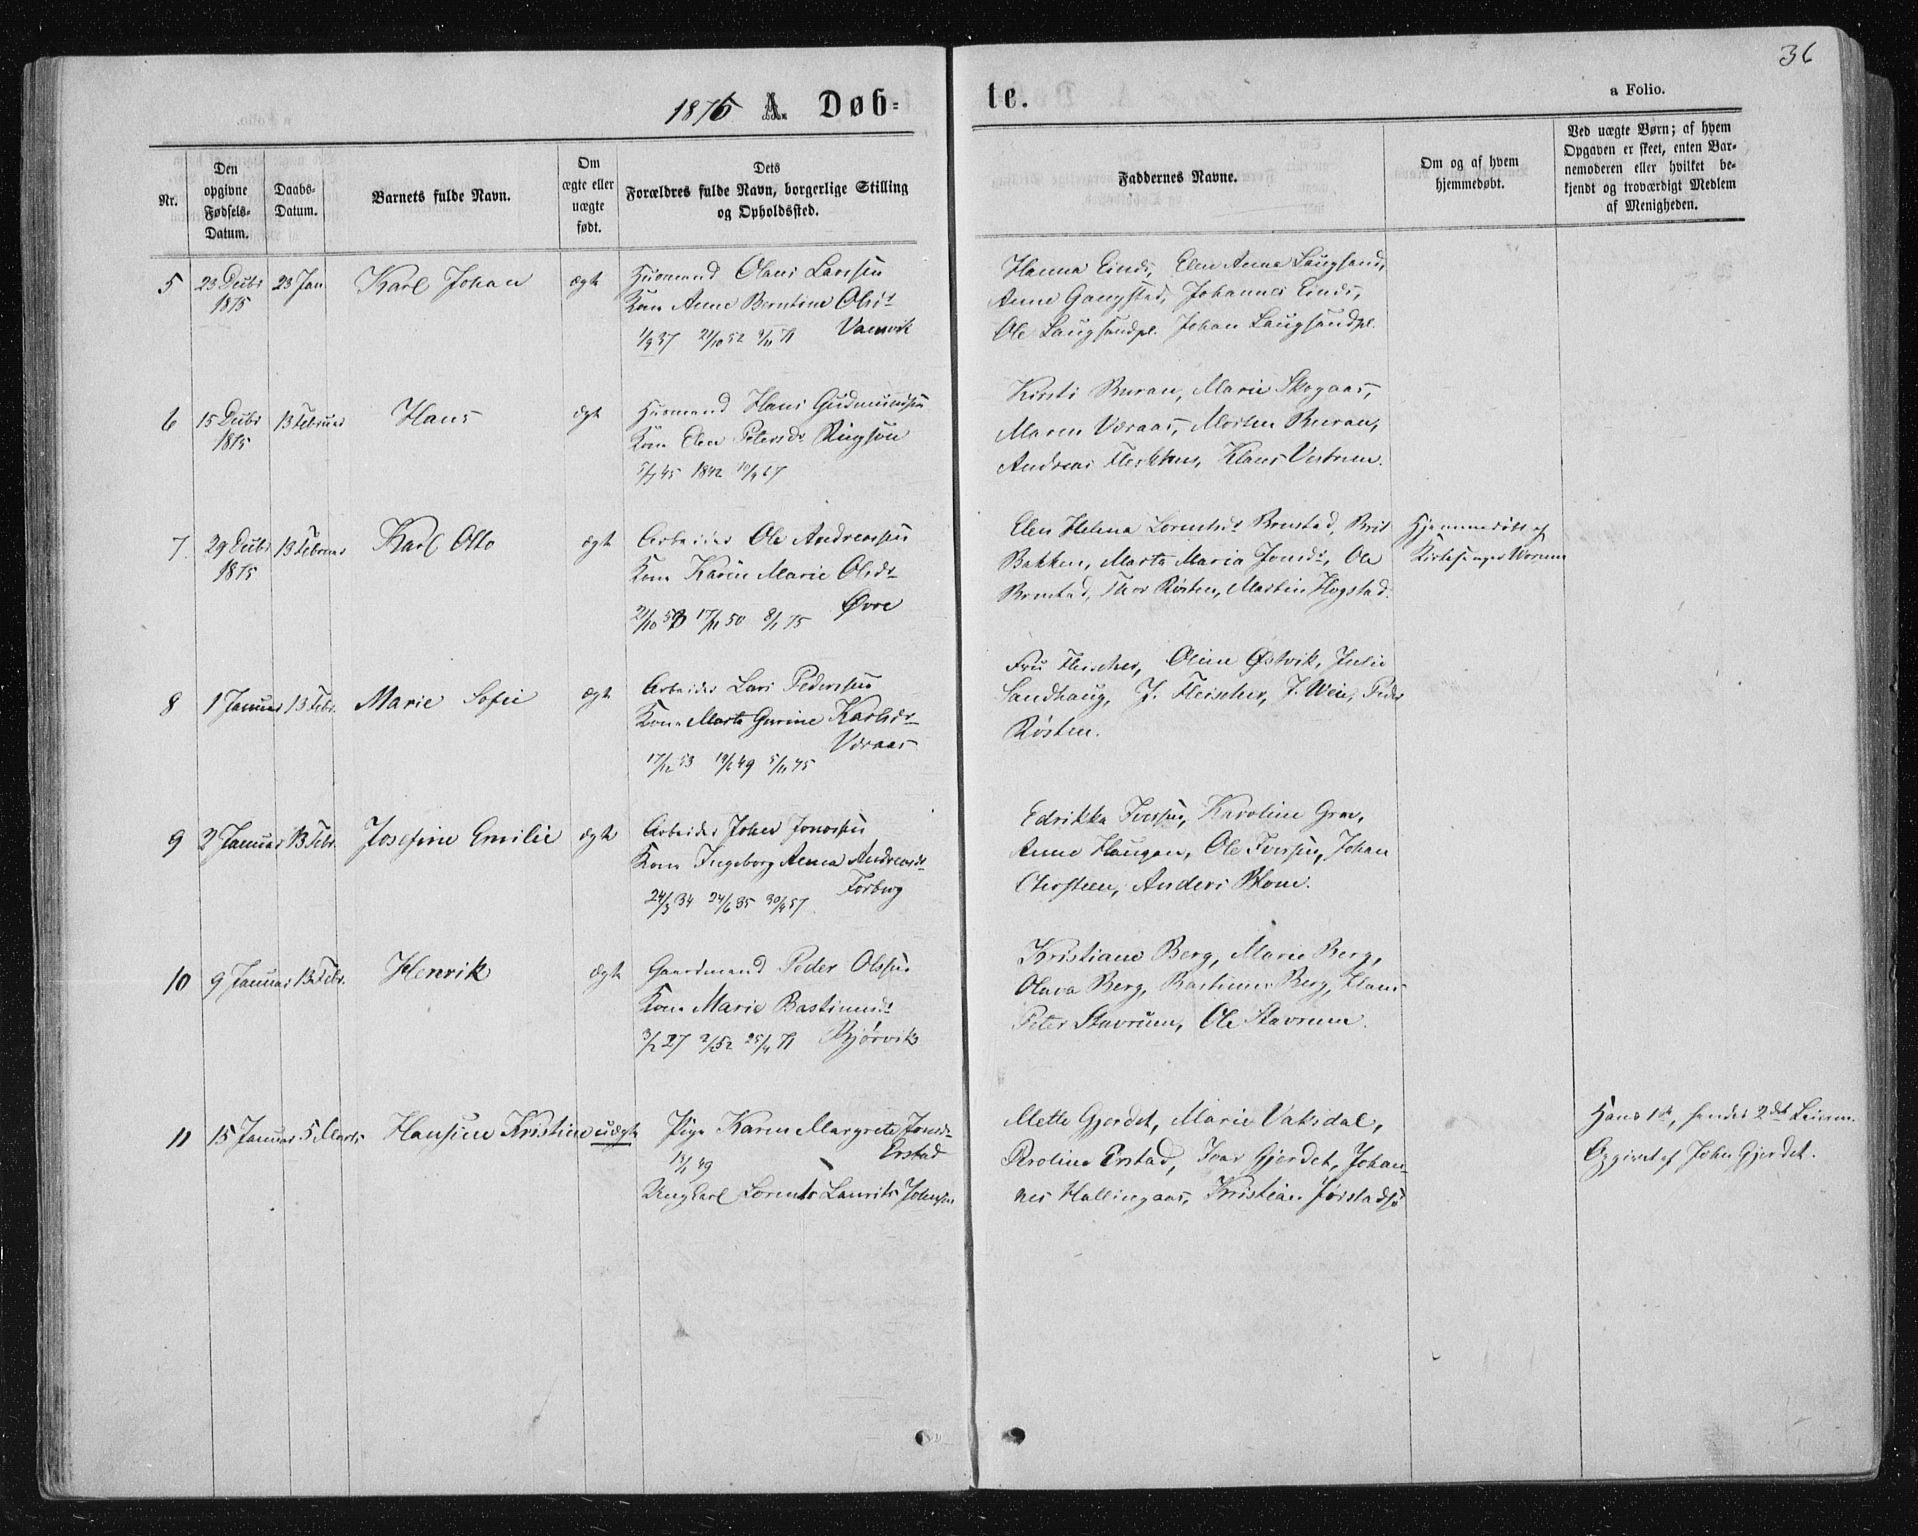 36
1876 A. Døb-
te.
a Folio.
Nr.
Den
opgivne
Fødsels-
Datum.
Daabs-
Datum.
Barnets fulde Navn.
Om
ægte eller
uægte
født.
Dets
Forældres fulde Navn, borgerlige Stilling
og Opholdssted.
Faddernes Navne.
Om og af hvem
hjemmedøbt.
Ved uægte Børn; af hvem
Opgaven er skeet, enten Bar-
nemoderen eller hvilket be-
kjendt og troværdigt Medlem
af Menigheden.
5 23 Decbr 1875 23 Jan Karl Johan ægte
Husmand Olaus Larssen
Kone Anne Berntine Olsdr
1/9 37 21/10 52 Vansvik
Hanna Einds, Elen Anna Laugsand,
Anne Gangstad, Johannes Einds,
Ole Laugsandpl. Johan Laugsandpl.
6 15 Decbr 1875 13 Februar Hans ægte
Husmand Hans Gudmundsen
Kone Elen Petersdr Ringsøn
5/7 45 1842 10/4 67
Kirsti Buran, Marie Skogaas,
Maren Væraas, Morten Buran,
Andreas Flekken, Klaus Vestrum.
7 29 Decbr 1875 13 Februar Karl Otto ægte
Arbeider Ole Andreassen
Kone Karen Marie Olsdr
17/11 50 8/1 75 Øvre
Elen Helena Lorentsdr Brustad, Brit
Bakken, Marta Maria Jonsdr, Ole
Brustad, Thor Røsten, Martin Hogstad.
Hjemmedøbt af
Kirkesanger Worum
8 1 Januar 13 Febr. Marie Sofie ægte
Arbeider Lars Pederssen
Kone Marta Gurine Karlsdr
Væraas
17/12 53 49 5/11 75
Fru Fleischer, Oline Østvik, Julie
Sandhaug, J. Fleischer, J. Wei, Peder
Røsten.
9 2 Januar 13 Febr. Josefine Emilie ægte
Arbeider Johes Jonassen
Kone Ingeborg Anna Andreasdr
24/3 34 24/6 35 30/4 57 Forberg
Edrikka Iverssen, Karoline Grav,
Anne Haugan, Ole Iverssen, Johan
Anders Blom.
10 9 Januar 13 Febr. Henrik ægte
Gaardmand Peder Olssen
Kone Marie Bastiansdr
3/2 27 2/5 52 25/4 71 Bjørvik
Kristiane Berg, Marie Berg,
Olava Berg, Bastian Berg, Klaus
Peter Stavrum, Ole Stavrum.
11 15 Januar 5 Marts Hansine Kristine uægte
Pige Karen Margrete Jonsdr
13/1 49 Erstad
Ungkarl Lorents Laurits Johnsen
Mette Gjerdet, Marie Vatsdal,
Peroline Erstad, Ivar Gjerdet, Johan-
nes Hallingaas, Kristian Jørstadsø
Hans 1ste, hendes 2det Leierm.
Opgivet af John Gjerdet.